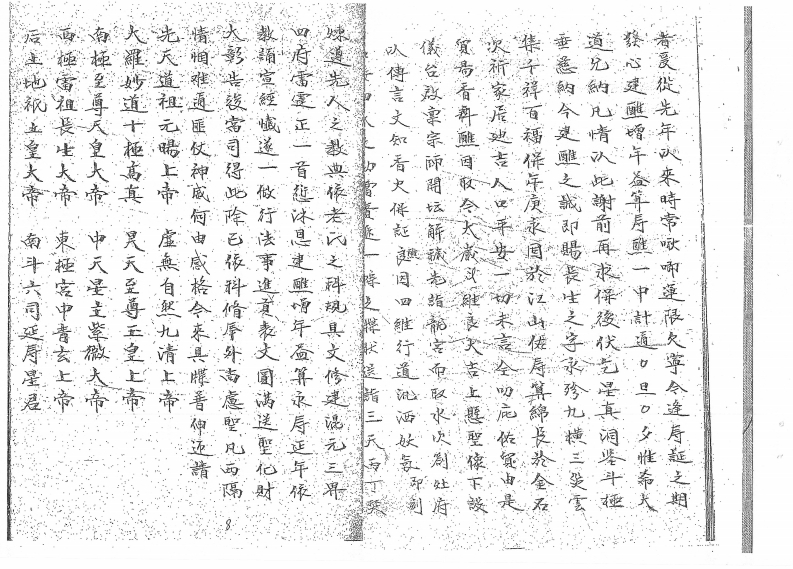 者爰從先年以來時常啾唧運限欠寧今逢壽誕之期
發心建醮增年益算壽醮一中計通〇旦〇夕惟希大
道允納凡情以此謝前再求保後伏乞星真洞鑒斗極
垂慈納今建醮之誠即賜長生之字永殄九橫三災雲
集千祥百福保年庚永固於江山佑壽算綿長於金石
次祈家居迪吉人口平安一切未言全叨庇佑寔由是
寅備香齋醮目取今大歲月維良大吉上懸聖像下設
儀台啟稟宗師開坛解穢先詣龍宮布取水次詣灶府
以傳言文知香火保証良因四維行道汎洒妖氛即刻
一牒之牒狀送詣三天
煉遵先人之教典依老氏之科規具文修建混元三界
四府雷霆正一首愆沐恩建醮增年益算永壽延年依
教誦宣經懺遂一做行法事進貢表文圓滿送聖化財
大彰告竣當司得此除已依科脩辱外尚慮聖凡西隔
情悃难通匪仗神威何由感格今來具牒晋伸迎請
先天道祖元暘上帝 虛無自然九清上帝
大羅妙道十極高真 昊天至尊玉皇上帝
南極至尊天皇大帝 中天星主紫微大帝
西極雷祖長生大帝 東極宮中青玄上帝
后土地祇土皇大帝 南斗六司延壽星君
8